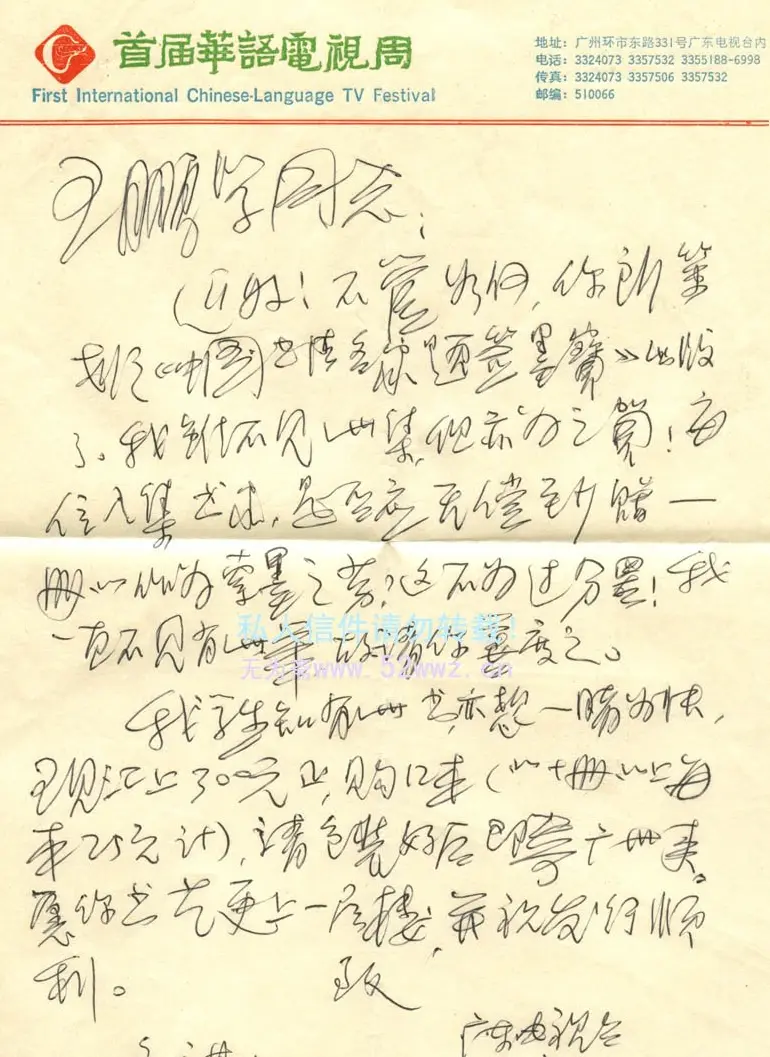 首届華語電視周
First International Chinese-Language TV Festival
地址：广州环市东路331号广东电视台内
电话：3324073 3357532 3355188-6998
传真：3324073 3357506 3357532
邮编：510066
王鹏学同志：
近好！不管如何，你所策
划《中国书法名家题签墨宝》出版
了。我虽不见此集，但亦为之贺！每
位入集书家，是否应无偿至少赠一
册以作为索墨之劳？这不为过分罢！我
一直不见有此举，故请你要度之。
私人信件请勿转载！
www.52wwz.cn
我学生知有此书，亦想一睹为快，
现汇上300元正，购12本（以十册以上每
本25元计），请包装好后即寄广州来。
愿你书艺更上一层楼，并祝发行顺
利。 致
广东电视台